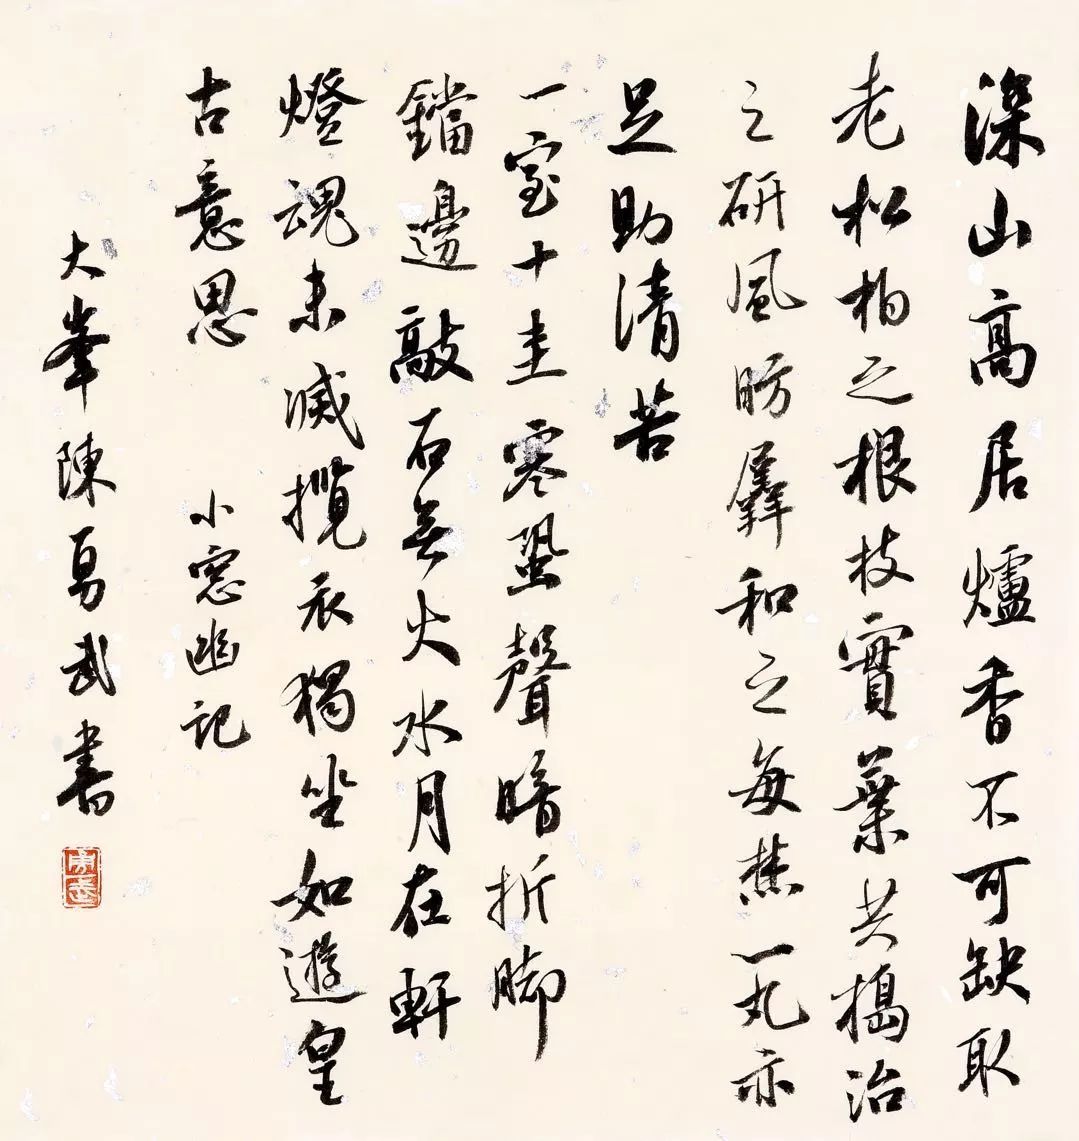 深山高居爐香不可缺取
老松柏之根枝實葉共搗治
之研風昉羼和之每焦一丸亦
足助清苦
一室十圭寒蛩聲暗折脚
鐺邊敲石無火水月在軒
燈魂未滅攬衣獨坐如遊皇
古意思
小窓幽記
大峯陳勇武書